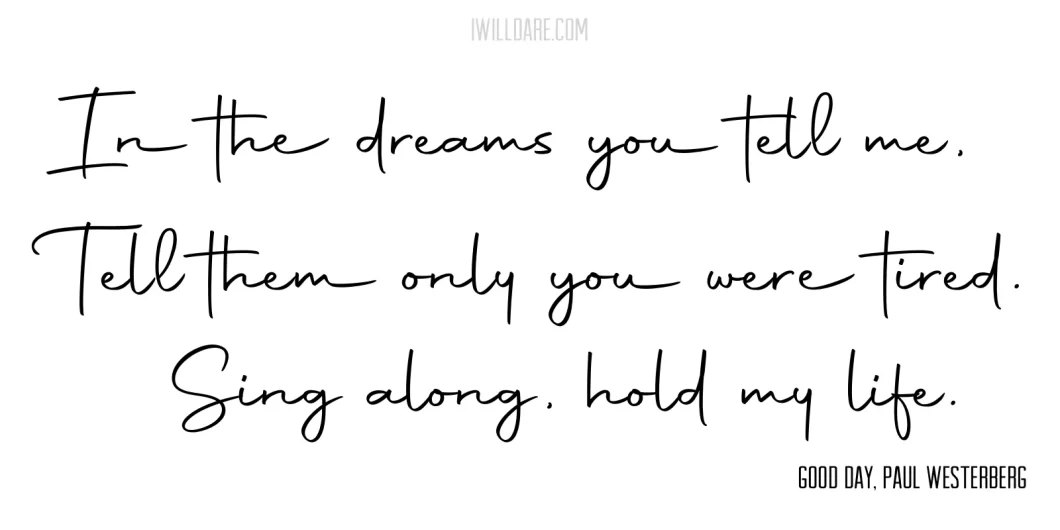 IWILLDARE.COM
In the dreams you tell me,
Tell them only you were tired.
Sing along, hold my life.
GOOD DAY, PAUL WESTERBERG